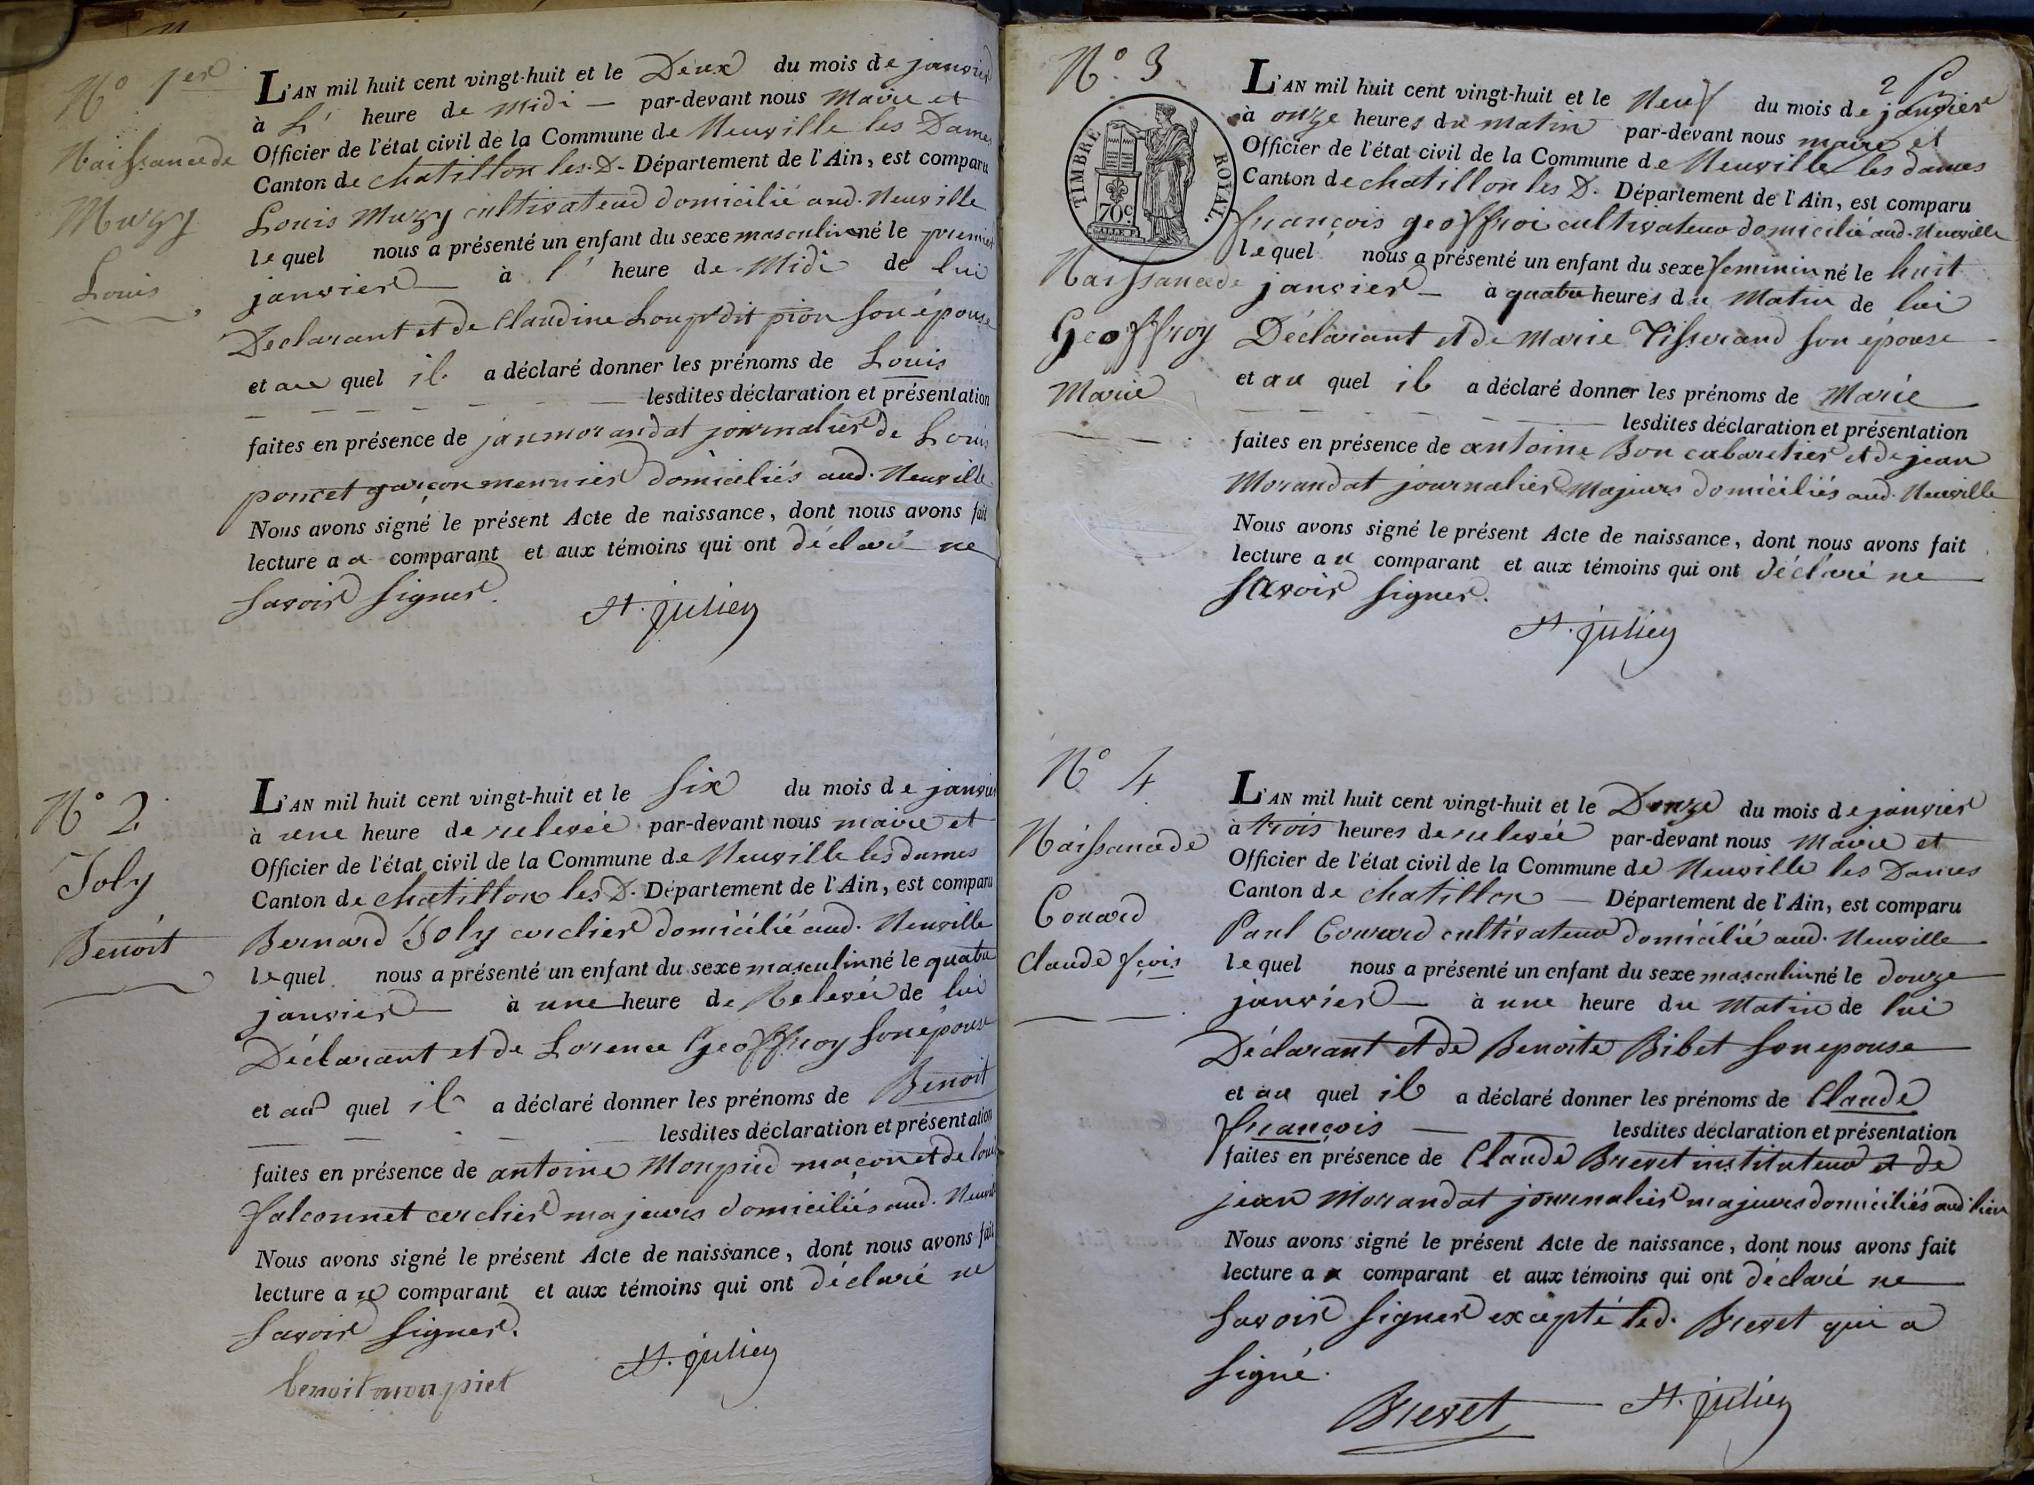 N.° 1er
Naissance de
Muzy
Louis
L'AN mil huit cent vingt-huit et le Deux du mois de janvier
à L' heure de Midi — par-devant nous Maire et
Officier de l'état civil de la Commune de Neuville les Dames
Canton de chatillon les. D. Département de l'Ain, est comparu
Louis Muzy cultivateur domicilié aud. Neuville
lequel nous a présenté un enfant du sexe masculin né le premier
janvier — à l' heure de Midi de lui
Declarant et de Claudine Loup dit pion son épouse
et au quel il a déclaré donner les prénoms de Louis
lesdites déclaration et présentation
faites en présence de jean morandat journalier de Louis
poncet garçon meunier domiciliés aud. Neuville
Nous avons signé le présent Acte de naissance, dont nous avons fait
lecture au comparant et aux témoins qui ont déclaré ne
savoir signer.
St. julien
N.° 2
Joly
Benoit
L'AN mil huit cent vingt-huit et le six du mois de janvier
à une heure de relevée par-devant nous maire et
Officier de l'état civil de la Commune de Neuville les dames
Canton de chatillon les D. Département de l'Ain, est comparu
Bernard Joly cerclier domicilié aud. Neuville
lequel nous a présenté un enfant du sexe masculin né le quatre
janvier — à une heure de Relevée de lui
Déclarant et de Lorence Geoffroy son épouse
et au quel il a déclaré donner les prénoms de Benoit
lesdites déclaration et présentation
faites en présence de antoine Monpied maçon et de louis
falconnet cerclier majeurs domiciliés aud. Neuville
Nous avons signé le présent Acte de naissance, dont nous avons fait
lecture au comparant et aux témoins qui ont déclaré ne
savoir signer.
St. julien
benoit monpiet
2
N.° 3
TIMBRE ROYAL.
70c.
Naissance de
Geoffroy
Marie
L'AN mil huit cent vingt-huit et le Neuf du mois de janvier
à onze heures du matin par-devant nous maire et
Officier de l'état civil de la Commune de Neuville les dames
Canton de chatillon les D. Département de l'Ain, est comparu
françois geoffroi cultivateur domicilié aud. Neuville
lequel nous a présenté un enfant du sexe feminin né le huit
janvier — à quatre heures du Matin de lui
Déclarant et de Marie Tisserand son épouse
et au quel il a déclaré donner les prénoms de Marie
lesdites déclaration et présentation
faites en présence de antoine Bon cabaretier et de jean
Morandat journalier Majeurs domiciliés aud. Neuville
Nous avons signé le présent Acte de naissance, dont nous avons fait
lecture au comparant et aux témoins qui ont déclaré ne
savoir signer.
St. julien
N.° 4
Naissance de
Couard
Claude fçois
L'AN mil huit cent vingt-huit et le Douze du mois de janvier
à trois heures de relevée par-devant nous Maire et
Officier de l'état civil de la Commune de Neuville les Dames
Canton de chatillon — Département de l'Ain, est comparu
Paul Couard cultivateur domicilié aud. Neuville
lequel nous a présenté un enfant du sexe masculin né le douze
janvier — à une heure du Matin de lui
Déclarant et de Benoite Bibet son epouse
et au quel il a déclaré donner les prénoms de Claude
françois — lesdites déclaration et présentation
faites en présence de Claude Brevet instituteur et de
jean Morandat journalier majeurs domiciliés aud. lieu
Nous avons signé le présent Acte de naissance, dont nous avons fait
lecture a comparant et aux témoins qui ont déclaré ne
savoir signer excepté led. Brevet qui a
signé.
Brevet St. julien